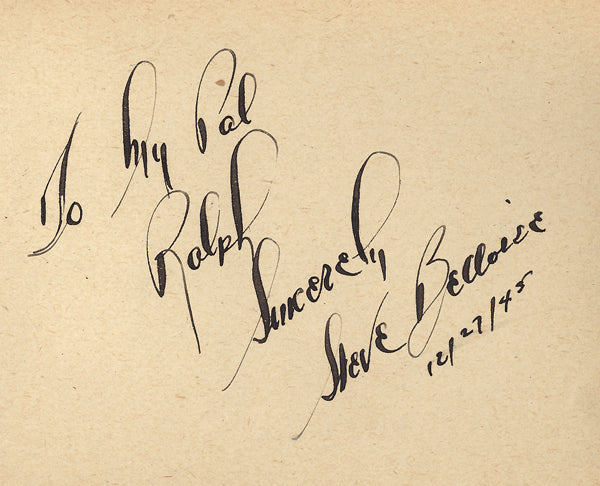 To My Pal
Ralph
Sincerely
Steve Belloise
12/27/45